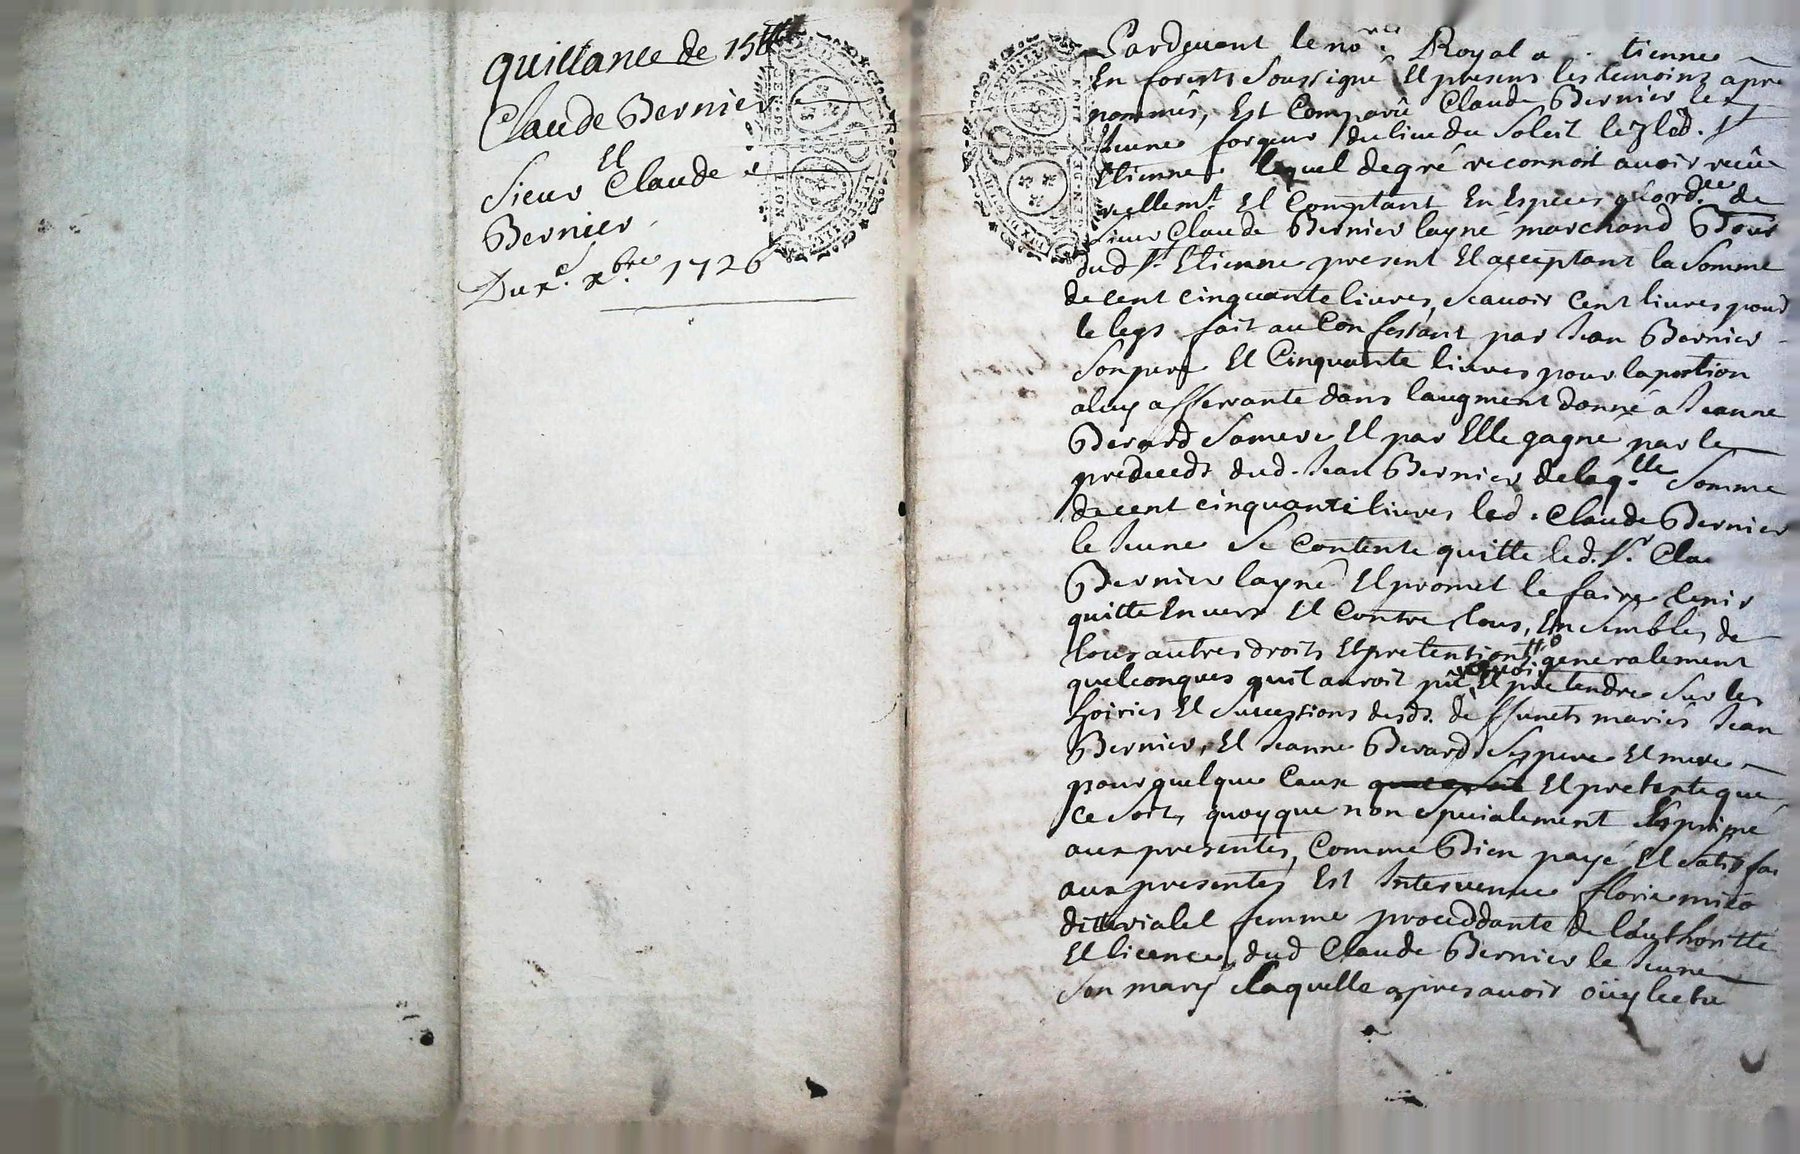 quittance de 15tt
Claude Bernier
Et
Sieur Claude
Bernier
Du xe. xbre. 1726
Pardevant le nore. Royal a tienne
En forests Soussigné Et presens les temoins apre
nommés, Est Comparu Claude Bernier le
Jeune forgeur du lieu du Soleil lez lad. St
Etienne lequel de gré reconnoit avoir reçu
reellemt. Et Comptant En Especes de
Sieur Claude Bernier layné marchand Bour
dud St. Etienne present Et acceptant la Somme
de cent cinquante livres, Scavoir Cent livres pour
le legs fait au Confessant par Jean Bernier
Son pere Et Cinquante livres pour la portion
a luy afferante dans laugment donné a Jeanne
Berard Sa mere Et par Elle gagné par le
predecedz dud. Jean Bernier de laqlle. Somme
de cent cinquante livres led. Claude Bernier
le Jeune Se Contente quitte led. Sr. Cla
Bernier layné Et promet le faire tenir
quitte Envers Et Contre tous, Ensembles de
tous autres droits Et pretentions generalement
quelconques quil auroit pu Et pretendre Sur les
hoiries Et Successions desds. deffunets mariés Jean
Bernier, Et Jeanne Berard Ses pere Et mere
pour quelque Cause Et pretexte que
Ce Soit, quoyque non Specialement Exprimé
aux presentes, Comme Bien payé Et Satisfai
aux presentes Est Intervenue florie
femme proceddante de lauthoritté
Et licence dud Claude Bernier le Jeune
Son mary laquelle apres avoir ouy lectu